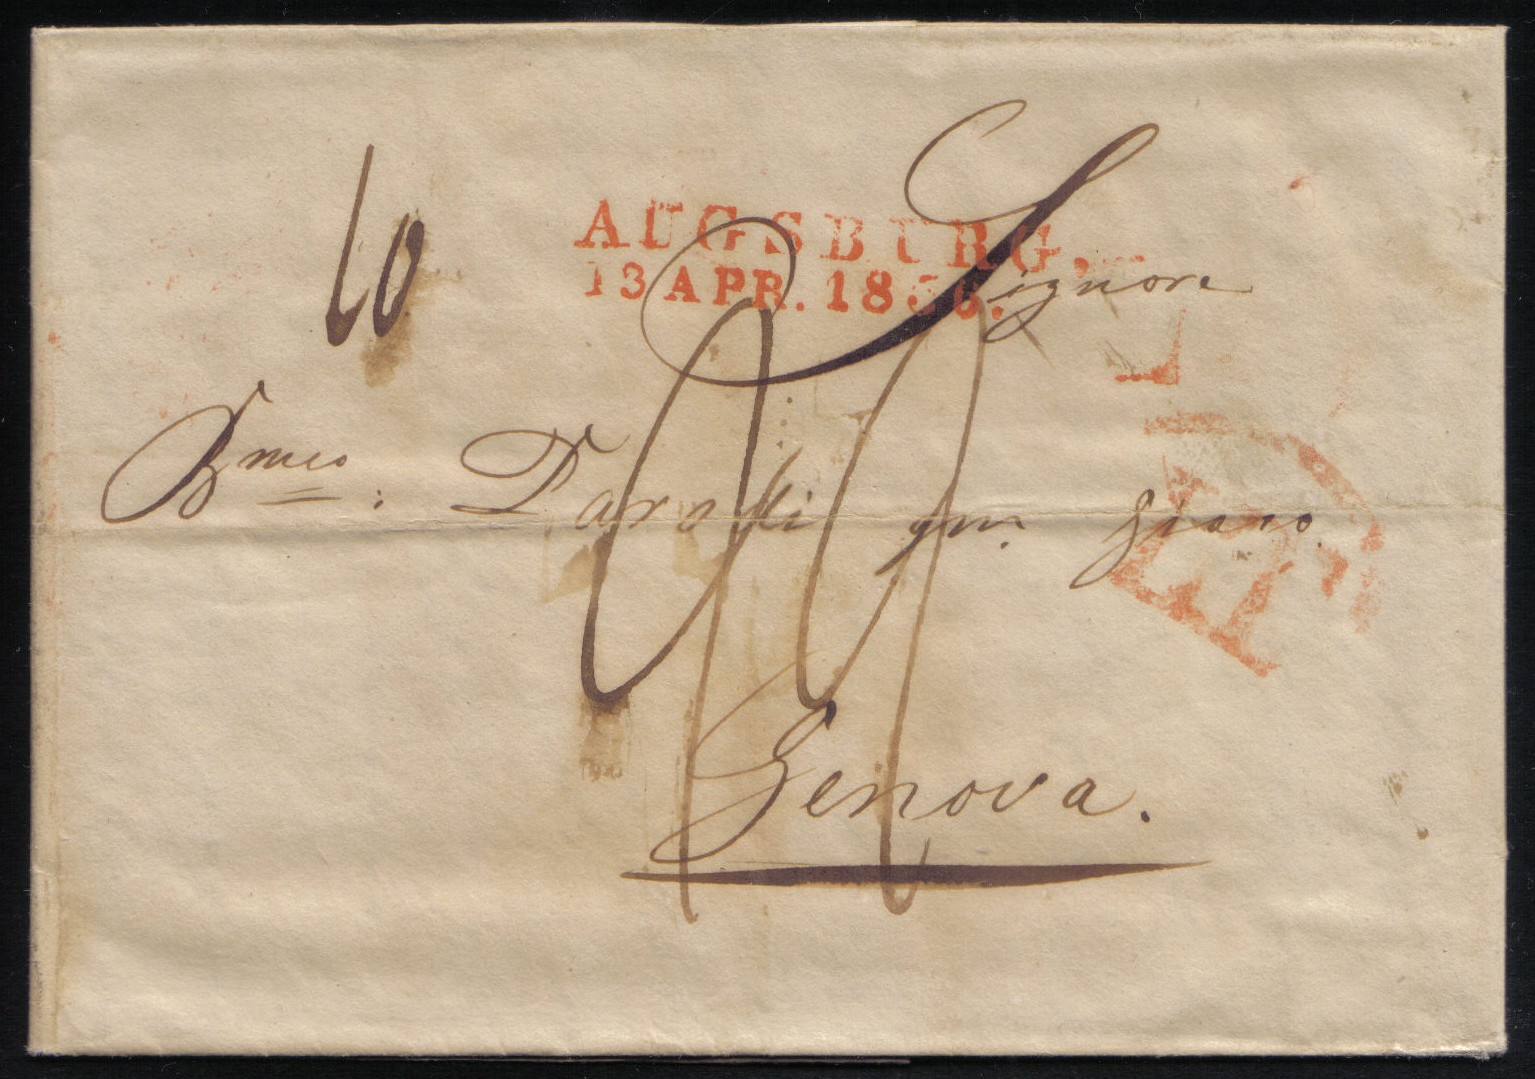 10
AUGSBURG.
13 APR. 1836.
Signore
Bmeo: Parodi qm. Giac.o
Genova.